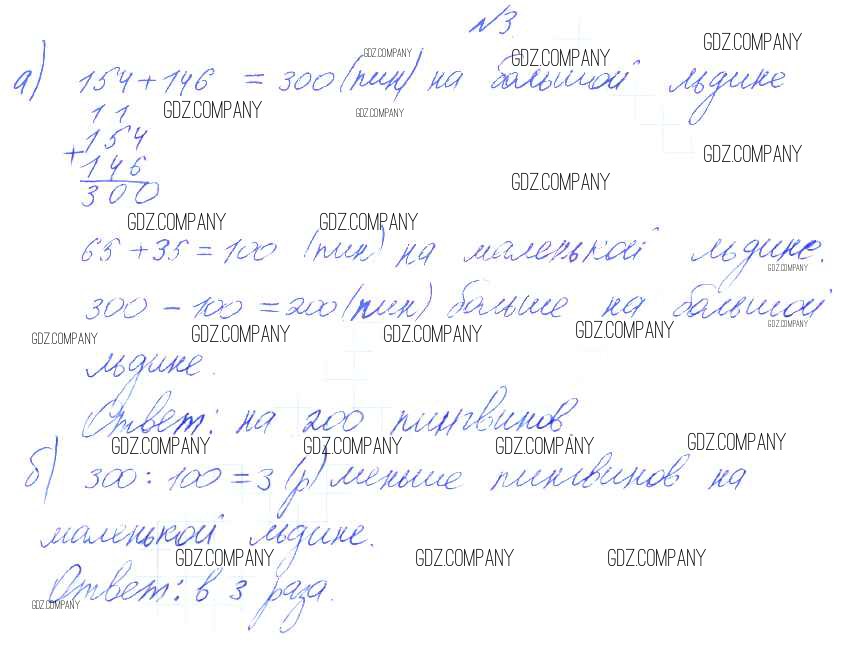 №3.
а) 154 + 146 = 300 (пин) на большой льдине
GDZ.COMPANY GDZ.COMPANY GDZ.COMPANY
11
GDZ.COMPANY GDZ.COMPANY
154
+
146
GDZ.COMPANY GDZ.COMPANY
300
GDZ.COMPANY GDZ.COMPANY
65 + 35 = 100 (пин) на маленькой льдине.
GDZ.COMPANY
300 - 100 = 200 (пин) больше на большой
GDZ.COMPANY GDZ.COMPANY GDZ.COMPANY GDZ.COMPANY GDZ.COMPANY
льдине.
Ответ: на 200 пингвинов
GDZ.COMPANY GDZ.COMPANY GDZ.COMPANY GDZ.COMPANY
б) 300 : 100 = 3 (р) меньше пингвинов на
маленькой льдине.
GDZ.COMPANY GDZ.COMPANY GDZ.COMPANY
Ответ: в 3 раза.
GDZ.COMPANY